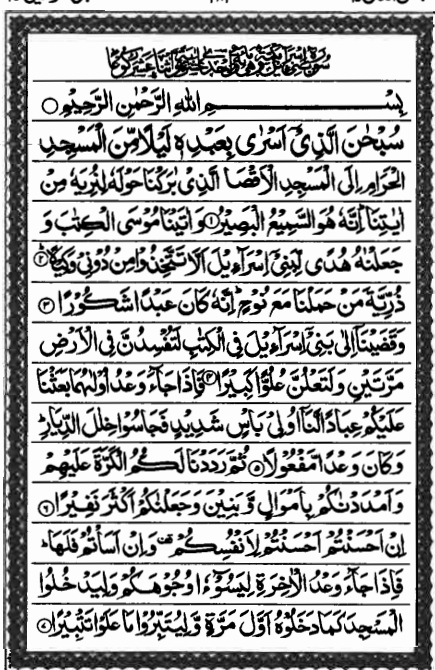 سُوْرَةُ بَنِیْٓ اِسْرَآءِیْلَ مَكِّیَّةٌ وَّهِیَ مِائَةٌ وَّاِحْدٰی عَشْرَةَ اٰیَةً وَّاثْنَا عَشَرَ رُكُوْعًا
بِسْمِ اللهِ الرَّحْمٰنِ الرَّحِیْمِ
سُبْحٰنَ الَّذِیْٓ اَسْرٰی بِعَبْدِهٖ لَیْلًا مِّنَ الْمَسْجِدِ
الْحَرَامِ اِلَی الْمَسْجِدِ الْاَقْصَا الَّذِیْ بٰرَكْنَا حَوْلَهٗ لِنُرِیَهٗ مِنْ
اٰیٰتِنَا ؕ اِنَّهٗ هُوَ السَّمِیْعُ الْبَصِیْرُ ﴿۱﴾ وَ اٰتَیْنَا مُوْسَی الْكِتٰبَ وَ
جَعَلْنٰهُ هُدًی لِّبَنِیْٓ اِسْرَآءِیْلَ اَلَّا تَتَّخِذُوْا مِنْ دُوْنِیْ وَكِیْلًا ﴿۲﴾
ذُرِّیَّةَ مَنْ حَمَلْنَا مَعَ نُوْحٍ ؕ اِنَّهٗ كَانَ عَبْدًا شَكُوْرًا ﴿۳﴾
وَ قَضَیْنَاۤ اِلٰی بَنِیْٓ اِسْرَآءِیْلَ فِی الْكِتٰبِ لَتُفْسِدُنَّ فِی الْاَرْضِ
مَرَّتَیْنِ وَ لَتَعْلُنَّ عُلُوًّا كَبِیْرًا ﴿۴﴾ فَاِذَا جَآءَ وَعْدُ اُوْلٰىهُمَا بَعَثْنَا
عَلَیْكُمْ عِبَادًا لَّنَاۤ اُولِیْ بَاْسٍ شَدِیْدٍ فَجَاسُوْا خِلٰلَ الدِّیَارِ ؕ
وَ كَانَ وَعْدًا مَّفْعُوْلًا ﴿۵﴾ ثُمَّ رَدَدْنَا لَكُمُ الْكَرَّةَ عَلَیْهِمْ
وَ اَمْدَدْنٰكُمْ بِاَمْوَالٍ وَّ بَنِیْنَ وَ جَعَلْنٰكُمْ اَكْثَرَ نَفِیْرًا ﴿۶﴾
اِنْ اَحْسَنْتُمْ اَحْسَنْتُمْ لِاَنْفُسِكُمْ ۫ وَ اِنْ اَسَاْتُمْ فَلَهَا ؕ
فَاِذَا جَآءَ وَعْدُ الْاٰخِرَةِ لِیَسُوْٓءٗا وُجُوْهَكُمْ وَ لِیَدْخُلُوا
الْمَسْجِدَ كَمَا دَخَلُوْهُ اَوَّلَ مَرَّةٍ وَّ لِیُتَبِّرُوْا مَا عَلَوْا تَتْبِیْرًا ﴿۷﴾